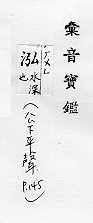 彙音寶鑑
泓 水深也
(公下平聲 P.145)